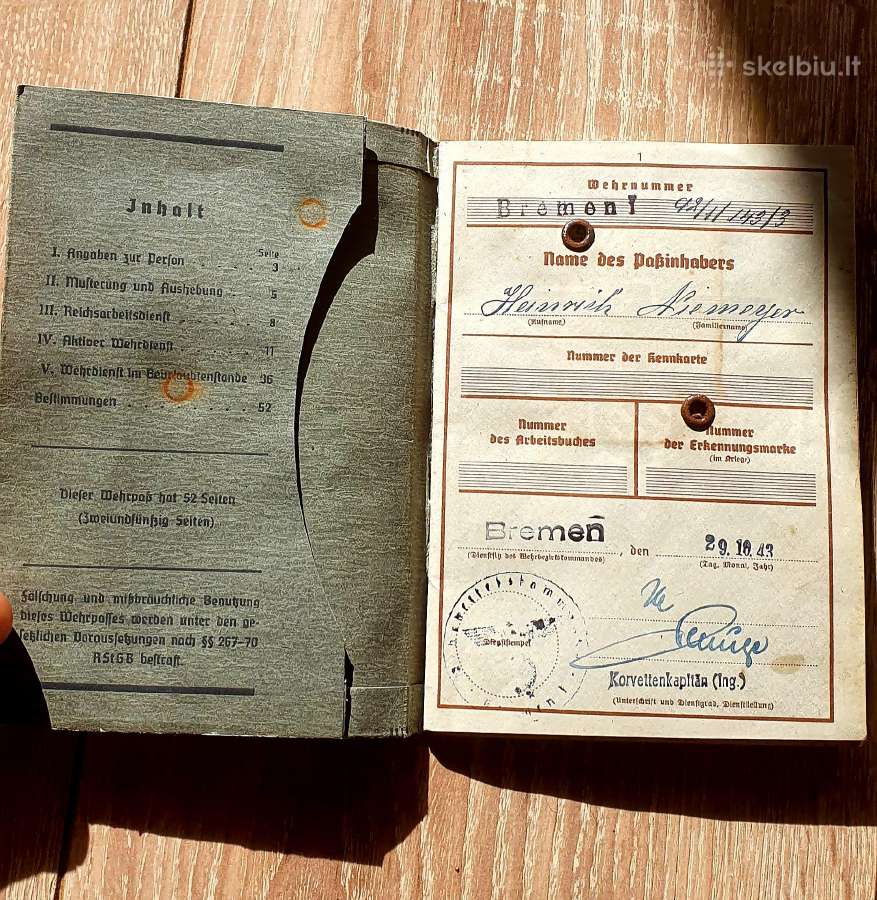 skelbiu.lt
Inhalt
Seite
I. Angaben zur Person . . . . . 3
II. Musterung und Aushebung . . 5
III. Reichsarbeitsdienst . . . . . 8
IV. Aktiver Wehrdienst . . . . . 11
V. Wehrdienst im Beurlaubtenstande 36
Bestimmungen . . . . . . . . 52
Dieser Wehrpaß hat 52 Seiten
(Zweiundfünfzig Seiten)
Fälschung und mißbräuchliche Benutzung
dieses Wehrpasses werden unter den ge-
setzlichen Voraussetzungen nach §§ 267–70
RStGB bestraft.
1
Wehrnummer
Bremen I 98/1/143/3
Name des Paßinhabers
Heinrich Niemeyer
(Rufname) (Familienname)
Nummer der Kennkarte
Nummer
des Arbeitsbuches
Nummer
der Erkennungsmarke
(im Kriege)
Bremen, den 29.10.43
(Dienstsitz des Wehrbezirkskommandos) (Tag, Monat, Jahr)
Dienststempel
Korvettenkapitän (Ing.)
(Unterschrift und Dienstgrad, Dienststellung)